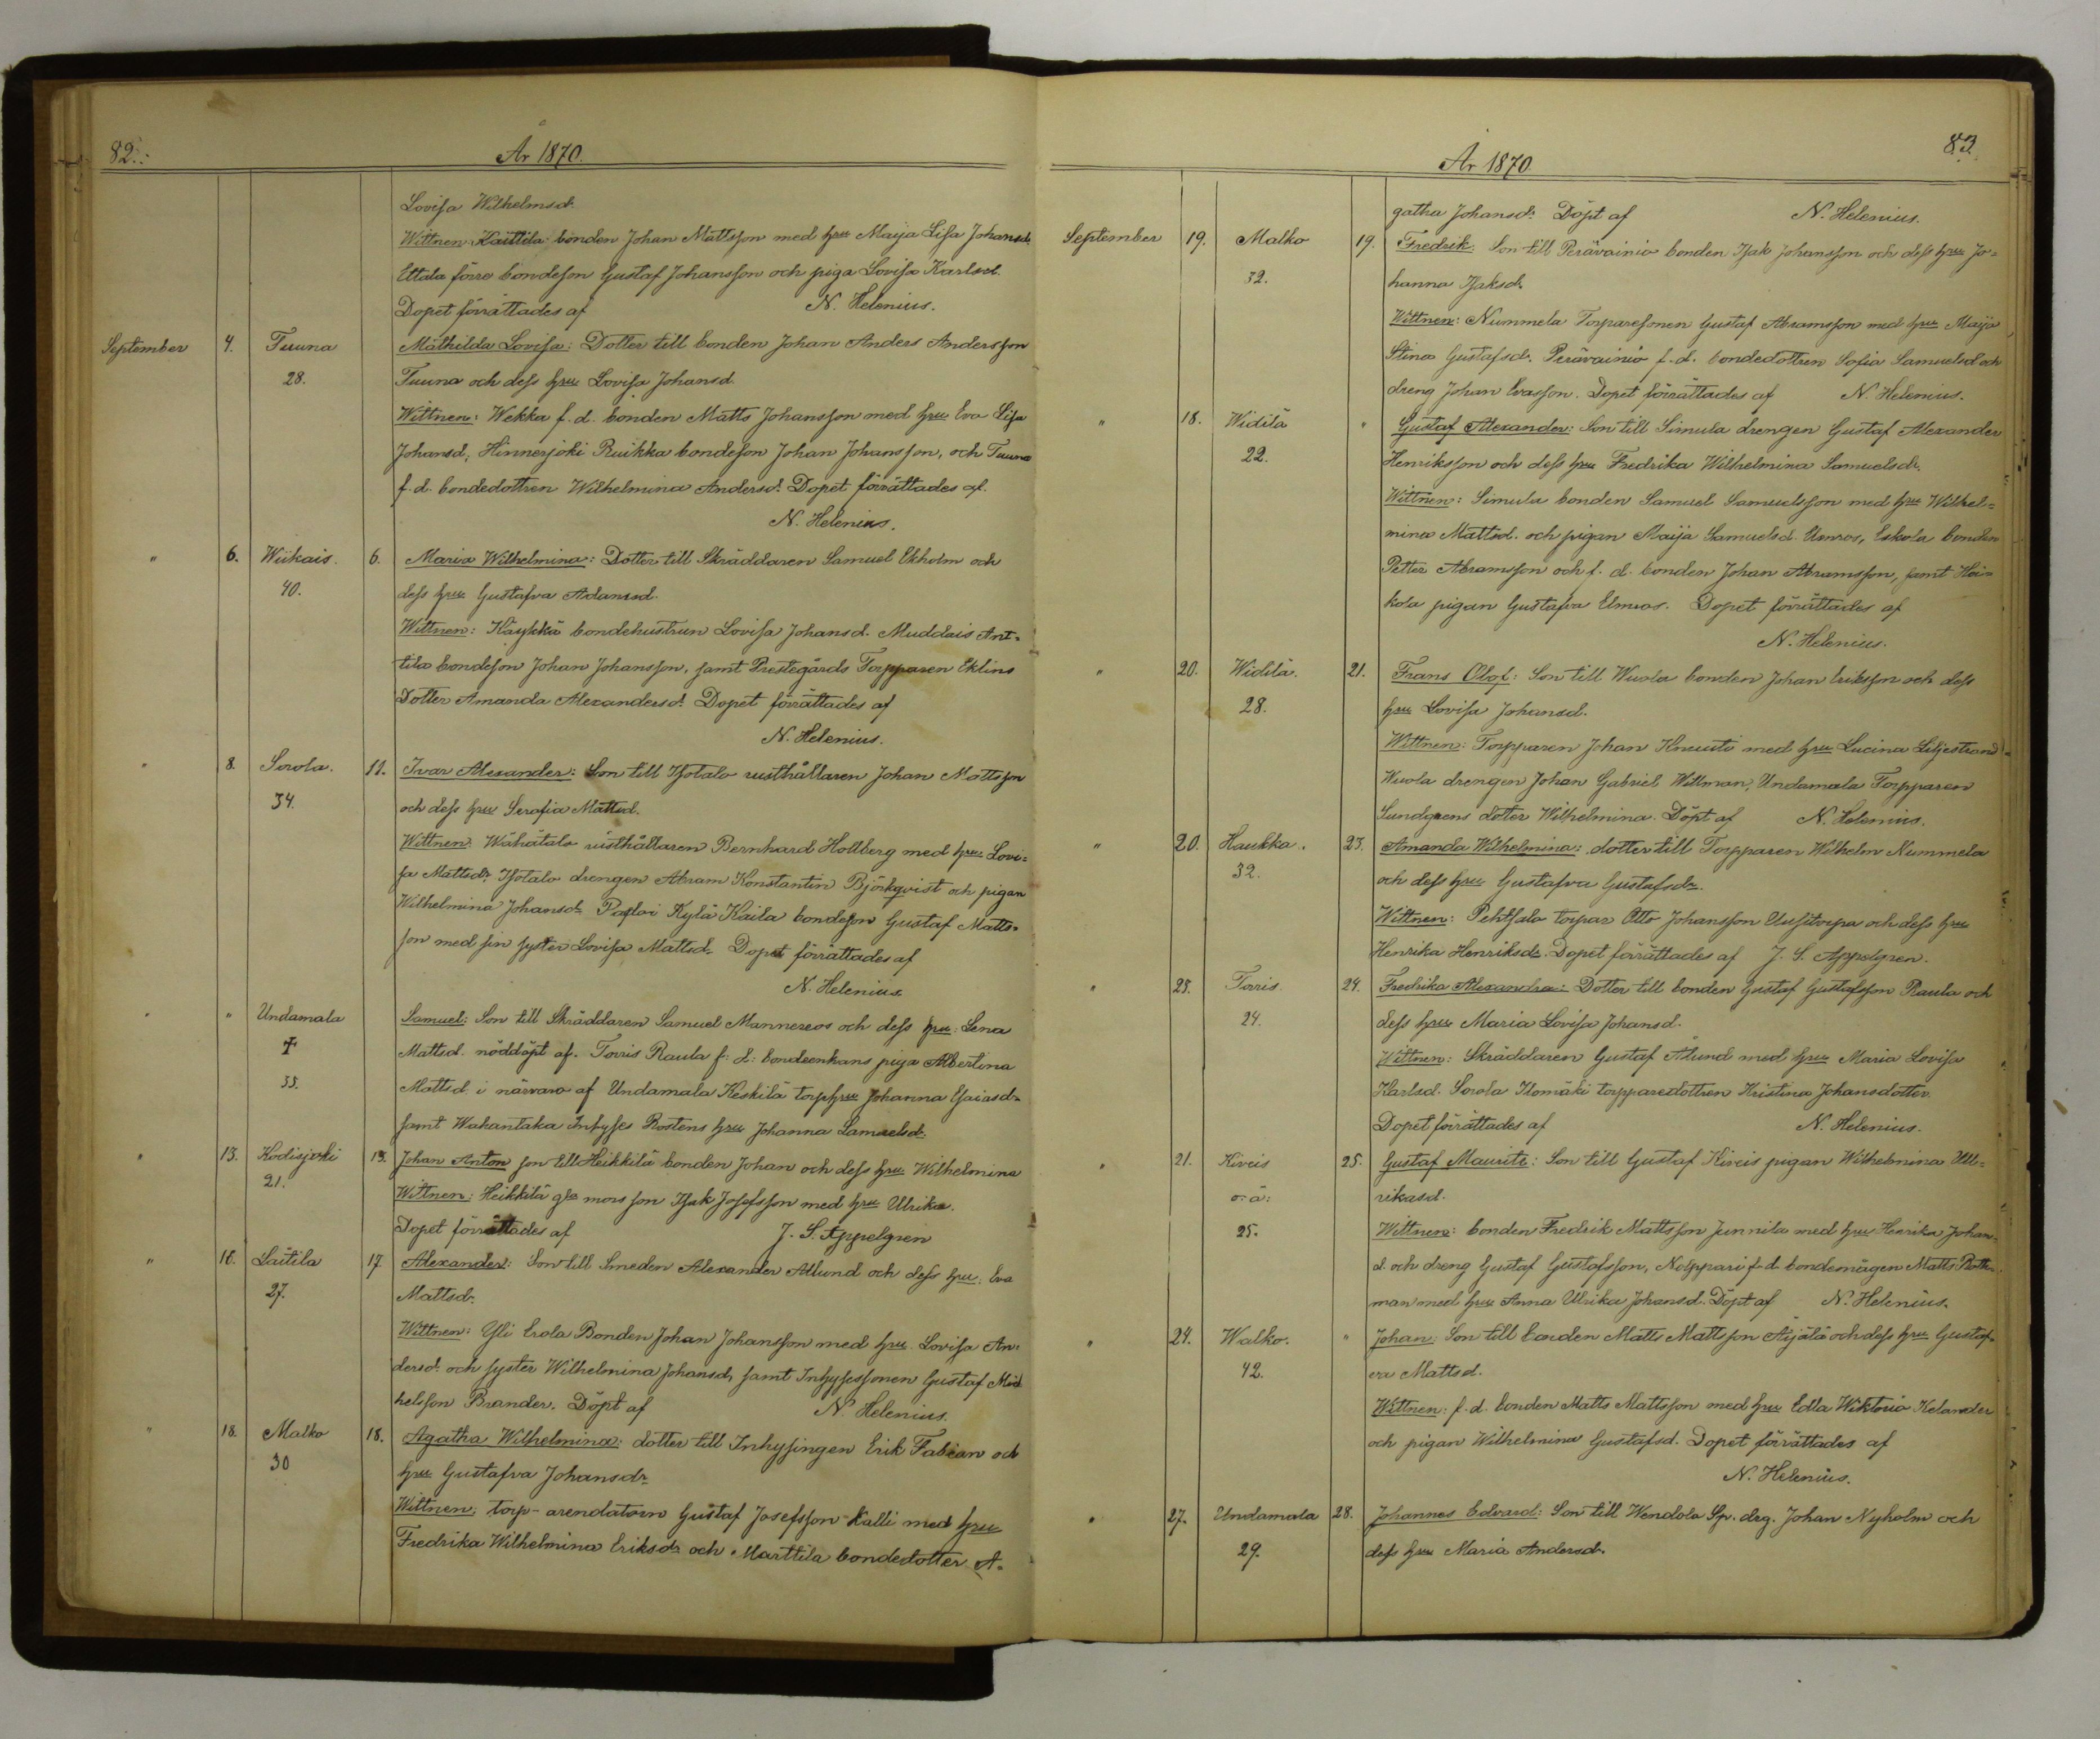 82.
År 1870.
Lovisa Wilhelmsd.
Wittnen: Kaittila bonden Johan Mattsson med hru Maija Lisa Johansd.
Ettala förre bondeson Gustaf Johansson och piga Lovisa Karlsd.
Dopet förrättades af N. Helenius.
September 4. Tuuna Mathilda Lovisa: Dotter till bonden Johan Anders Andersson
28. Tuuna och dess hru Lovisa Johansd.
Wittnen: Wekka f. d. bonden Matts Johansson med hru Eva Lisa
Johansd, Hinnerjoki Ruikka bondeson Johan Johansson, och Tuuna
f. d. bondedottren Wilhelmina Andersd. Dopet förrättades af.
N. Helenius.
" 6. Wiikais. 6. Maria Wilhelmina: Dotter till Skräddaren Samuel Ekholm och
40. dess hru Gustafva Adamsd.
Wittnen: Käykkä bondehustrun Lovisa Johansd. Muddais Ant=
tila bondeson Johan Johansson, samt Prestegårds Torpparen Eklins
Dotter Amanda Alexandersd. Dopet förrättades af
N. Helenius.
" 8. Sorola. 11. Ivar Alexander: Son till Isotalo rusthållaren Johan Mattsson
34. och dess hru Serafia Mattsd.
Wittnen: Wähätalo rusthållaren Bernhard Hollberg med hru Lovi=
sa Mattsdr Isotalo drengen Abram Konstantin Björkqvist och pigan
Wilhelmina Johansdr Kylä Kaila bondeson Gustaf Matts=
son med sin syster Lovisa Mattsd. Dopet förrättades af
N. Helenius
" " Undamala Samuel: Son till Skräddaren Samuel Mannereos och dess hru: Lena
† Mattsd. nöddöpt af. Torris Raula f: d: bondeenkans piga Albertina
55. Mattsd. i närvaro af Undamala Keskilä torphru Johanna Esaiasdr
samt Wahantaka Inhyses Rostens hru Johanna Samuelsd.
" 13. Kodisjoki 13. Johan Anton son till Heikkilä bonden Johan och dess hru: Wilhelmina
21. Wittnen: Heikkilä gla mors son Isak Josefsson med hru Ulrika.
Dopet förrättades af J. S. Appelgren
" 16. Laitila 17 Alexander: Son till Smeden Alexander Allund och dess hru: Eva
27. Mattsdr.
Wittnen: Yli Erola Bonden Johan Johansson med hru. Lovisa An=
dersd. och syster Wilhelmina Johansd, samt Inhysessonen Gustaf Mic
helsson Brander. Döpt af N. Helenius.
" 18. Malko 18. Agatha Wilhelmina: dotter till Inhysingen Erik Fabian och
30 hru Gustafva Johansdr
Wittnen: torp-arendatorn Gustaf Josefsson Kalli med hru
Fredrika Wilhelmina Eriksdr och Marttila bondedotter A=
83.
År 1870
gatha Johansd: Döpt af N. Helenius.
September 19. Malko 19. Fredrik. Son till Perävainio bonden Isak Johansson och dess hru Jo=
32. hanna Isaksd.
Wittnen: Nummela Torparesonen Gustaf Abramsson med hru Maija
Stina Gustafsdr. Perävainio f. d. bondedottren Sofia Samuelsd och
dreng Johan Evasson. Dopet förrättades af N. Helenius.
" 18. Widilä " Gustaf Alexander: Son till Simula drengen Gustaf Alexander
22. Henriksson och dess hru Fredrika Wilhelmina Samuelsdr.
Wittnen: Simula bonden Samuel Samuelsson med hru Wilhel=
mina Mattsd. och pigan Maija Samuelsd. Eskola bonden
Petter Abramsson och f. d. bonden Johan Abramsson, samt Hei=
kola pigan Gustafva Elmros. Dopet förrättades af
N. Helenius.
" 20. Widilä. 21. Frans Olof: Son till Wuola bonden Johan Eriksson och dess
28. hru Lovisa Johansd.
Wittnen: Torpparen Johan Knuuti med hru Lucina Liljestrand
Wuola drengen Johan Gabriel Willman, Undamala Torpparen
Sundgrens dotter Wilhelmina. Döpt af N. Helenius.
" 20. Haukka. 23. Amanda Wilhelmina: dotter till Torpparen Wilhelm Nummela
32. och dess hru Gustafva Gustafsdr.
Wittnen: Pehtsalo torpar Otto Johansson Uusitorpa och dess hru
Henrika Henriksdr. Dopet förrättades af J. S. Appelgren.
" 25. Torris. 24. Fredrika Alexandra: Dotter till bonden Gustaf Gustafsson Raula och
24. dess hru Maria Lovisa Johansd.
Wittnen: Skräddaren Gustaf Ålund med hru Maria Lovisa
Karlsd. Sorola Ilomäki torpparedottren Kristina Johansdotter.
Dopet förrättades af N. Helenius.
" 21. Kivcis 25. Gustaf Mauritz: Son till Gustaf Kivcis pigan Wilhelmina Ull=
o: ä: rikasd.
25. Wittnen: bonden Fredrik Mattsson Junnila med hru Henrika Johans=
d. och dreng Gustaf Gustafsson, Nolppari f. d. bondemågen Matts Roth=
man med hru Anna Ulrika Johansd. Döpt af N. Helenius.
" 24. Walko. " Johan: Son till bonden Matts Mattsson Äijälä och dess hru Gustaf=
42. va Mattsd.
Wittnen: f. d. bonden Matts Mattsson med hru Edla Wiktoria Kelander
och pigan Wilhelmina Gustafsd. Dopet förrättades af
N. Helenius.
" 27. Undamala 28. Johannes Edvard: Son till Wendola Sp. drg. Johan Nyholm och
29. dess hru Maria Andersd.